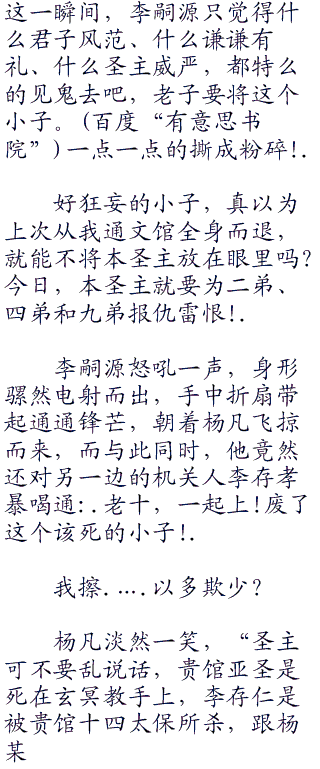 这一瞬间，李嗣源只觉得什
么君子风范、什么谦谦有
礼、什么圣主威严，都特么
的见鬼去吧，老子要将这个
小子。(百度“有意思书
院”)一点一点的撕成粉碎!.
好狂妄的小子，真以为
上次从我通文馆全身而退，
就能不将本圣主放在眼里吗?
今日，本圣主就要为二弟、
四弟和九弟报仇雷恨!.
李嗣源怒吼一声，身形
骤然电射而出，手中折扇带
起通通锋芒，朝着杨凡飞掠
而来，而与此同时，他竟然
还对另一边的机关人李存孝
暴喝通:.老十，一起上!废了
这个该死的小子!.
我擦.….以多欺少?
杨凡淡然一笑，“圣主
可不要乱说话，贵馆亚圣是
死在玄冥教手上，李存仁是
被贵馆十四太保所杀，跟杨
某